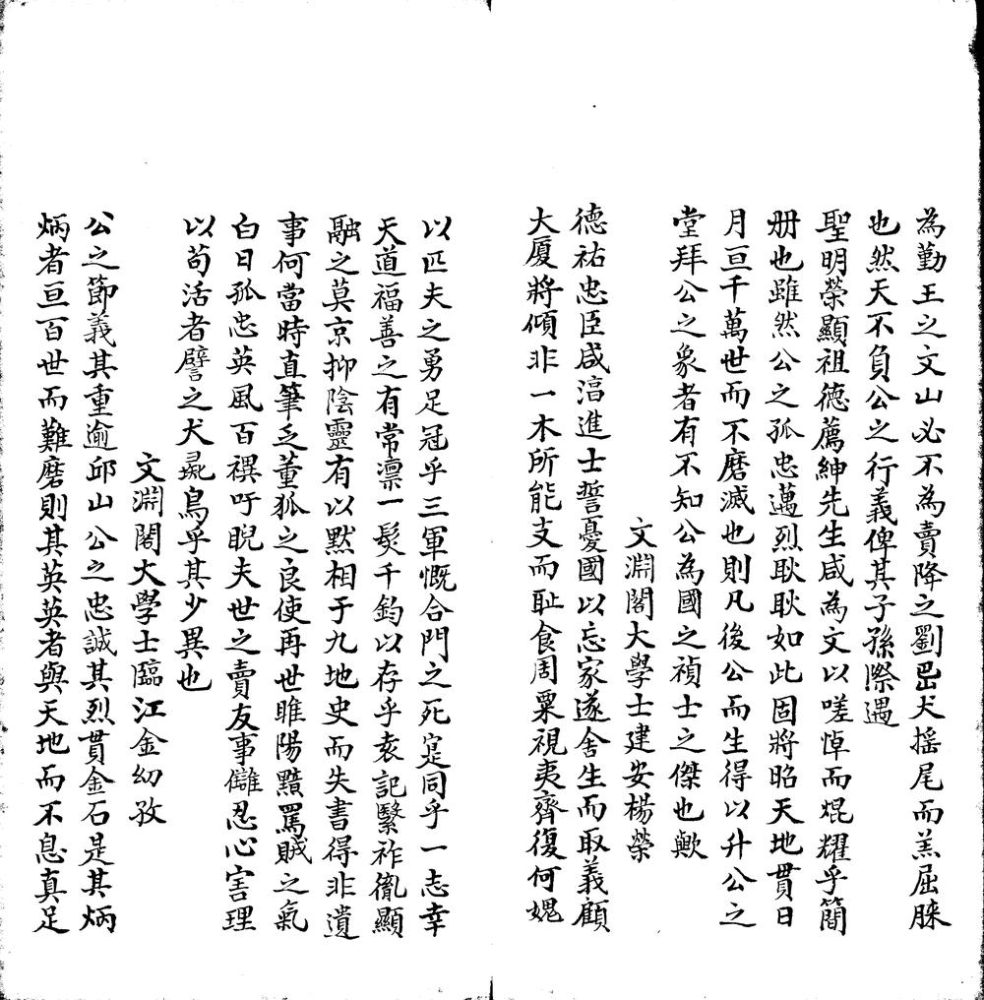 為勤王之文山必不為賣降之劉岊犬搖尾而羔屈膝
也然天不負公之行義俾其子孫際遇
聖明榮顯祖德薦紳先生咸為文以嗟悼而焜耀乎簡
册也雖然公之孤忠邁烈耿耿如此固將昭天地貫日
月亘千萬世而不磨滅也則凡後公而生得以升公之
堂拜公之象者有不知公為國之禎士之傑也歟
文淵閣大學士建安楊榮
德祐忠臣咸淳進士誓憂國以忘家遂舍生而取義顧
大厦將傾非一木所能支而耻食周粟視夷齊復何媿
以匹夫之勇足冠乎三軍慨合門之死寔同乎一志幸
天道福善之有常凛一髮千鈞以存乎袁記繄祚胤顯
融之莫京抑陰靈有以默相于九地史而失書得非遺
事何當時直筆乏董狐之良使再世睢陽黷罵賊之氣
白日孤忠英風百禩吁睨夫世之賣友事讎忍心害理
以苟活者譬之犬彘鳥乎其少異也
文淵閣大學士臨江金幼孜
公之節義其重逾邱山公之忠誠其烈貫金石是其炳
炳者亘百世而難磨則其英英者與天地而不息真足